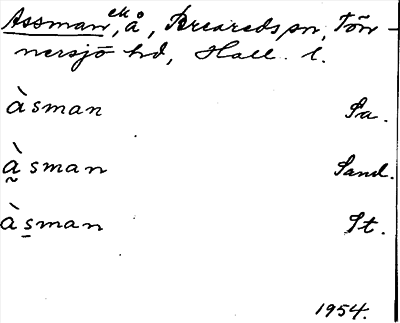 Assman, ek å, Breareds sn, Tön-
nersjö hd, Hall. l.
àsman Sa.
à̰sman Sand.
às̠man St.
1954.